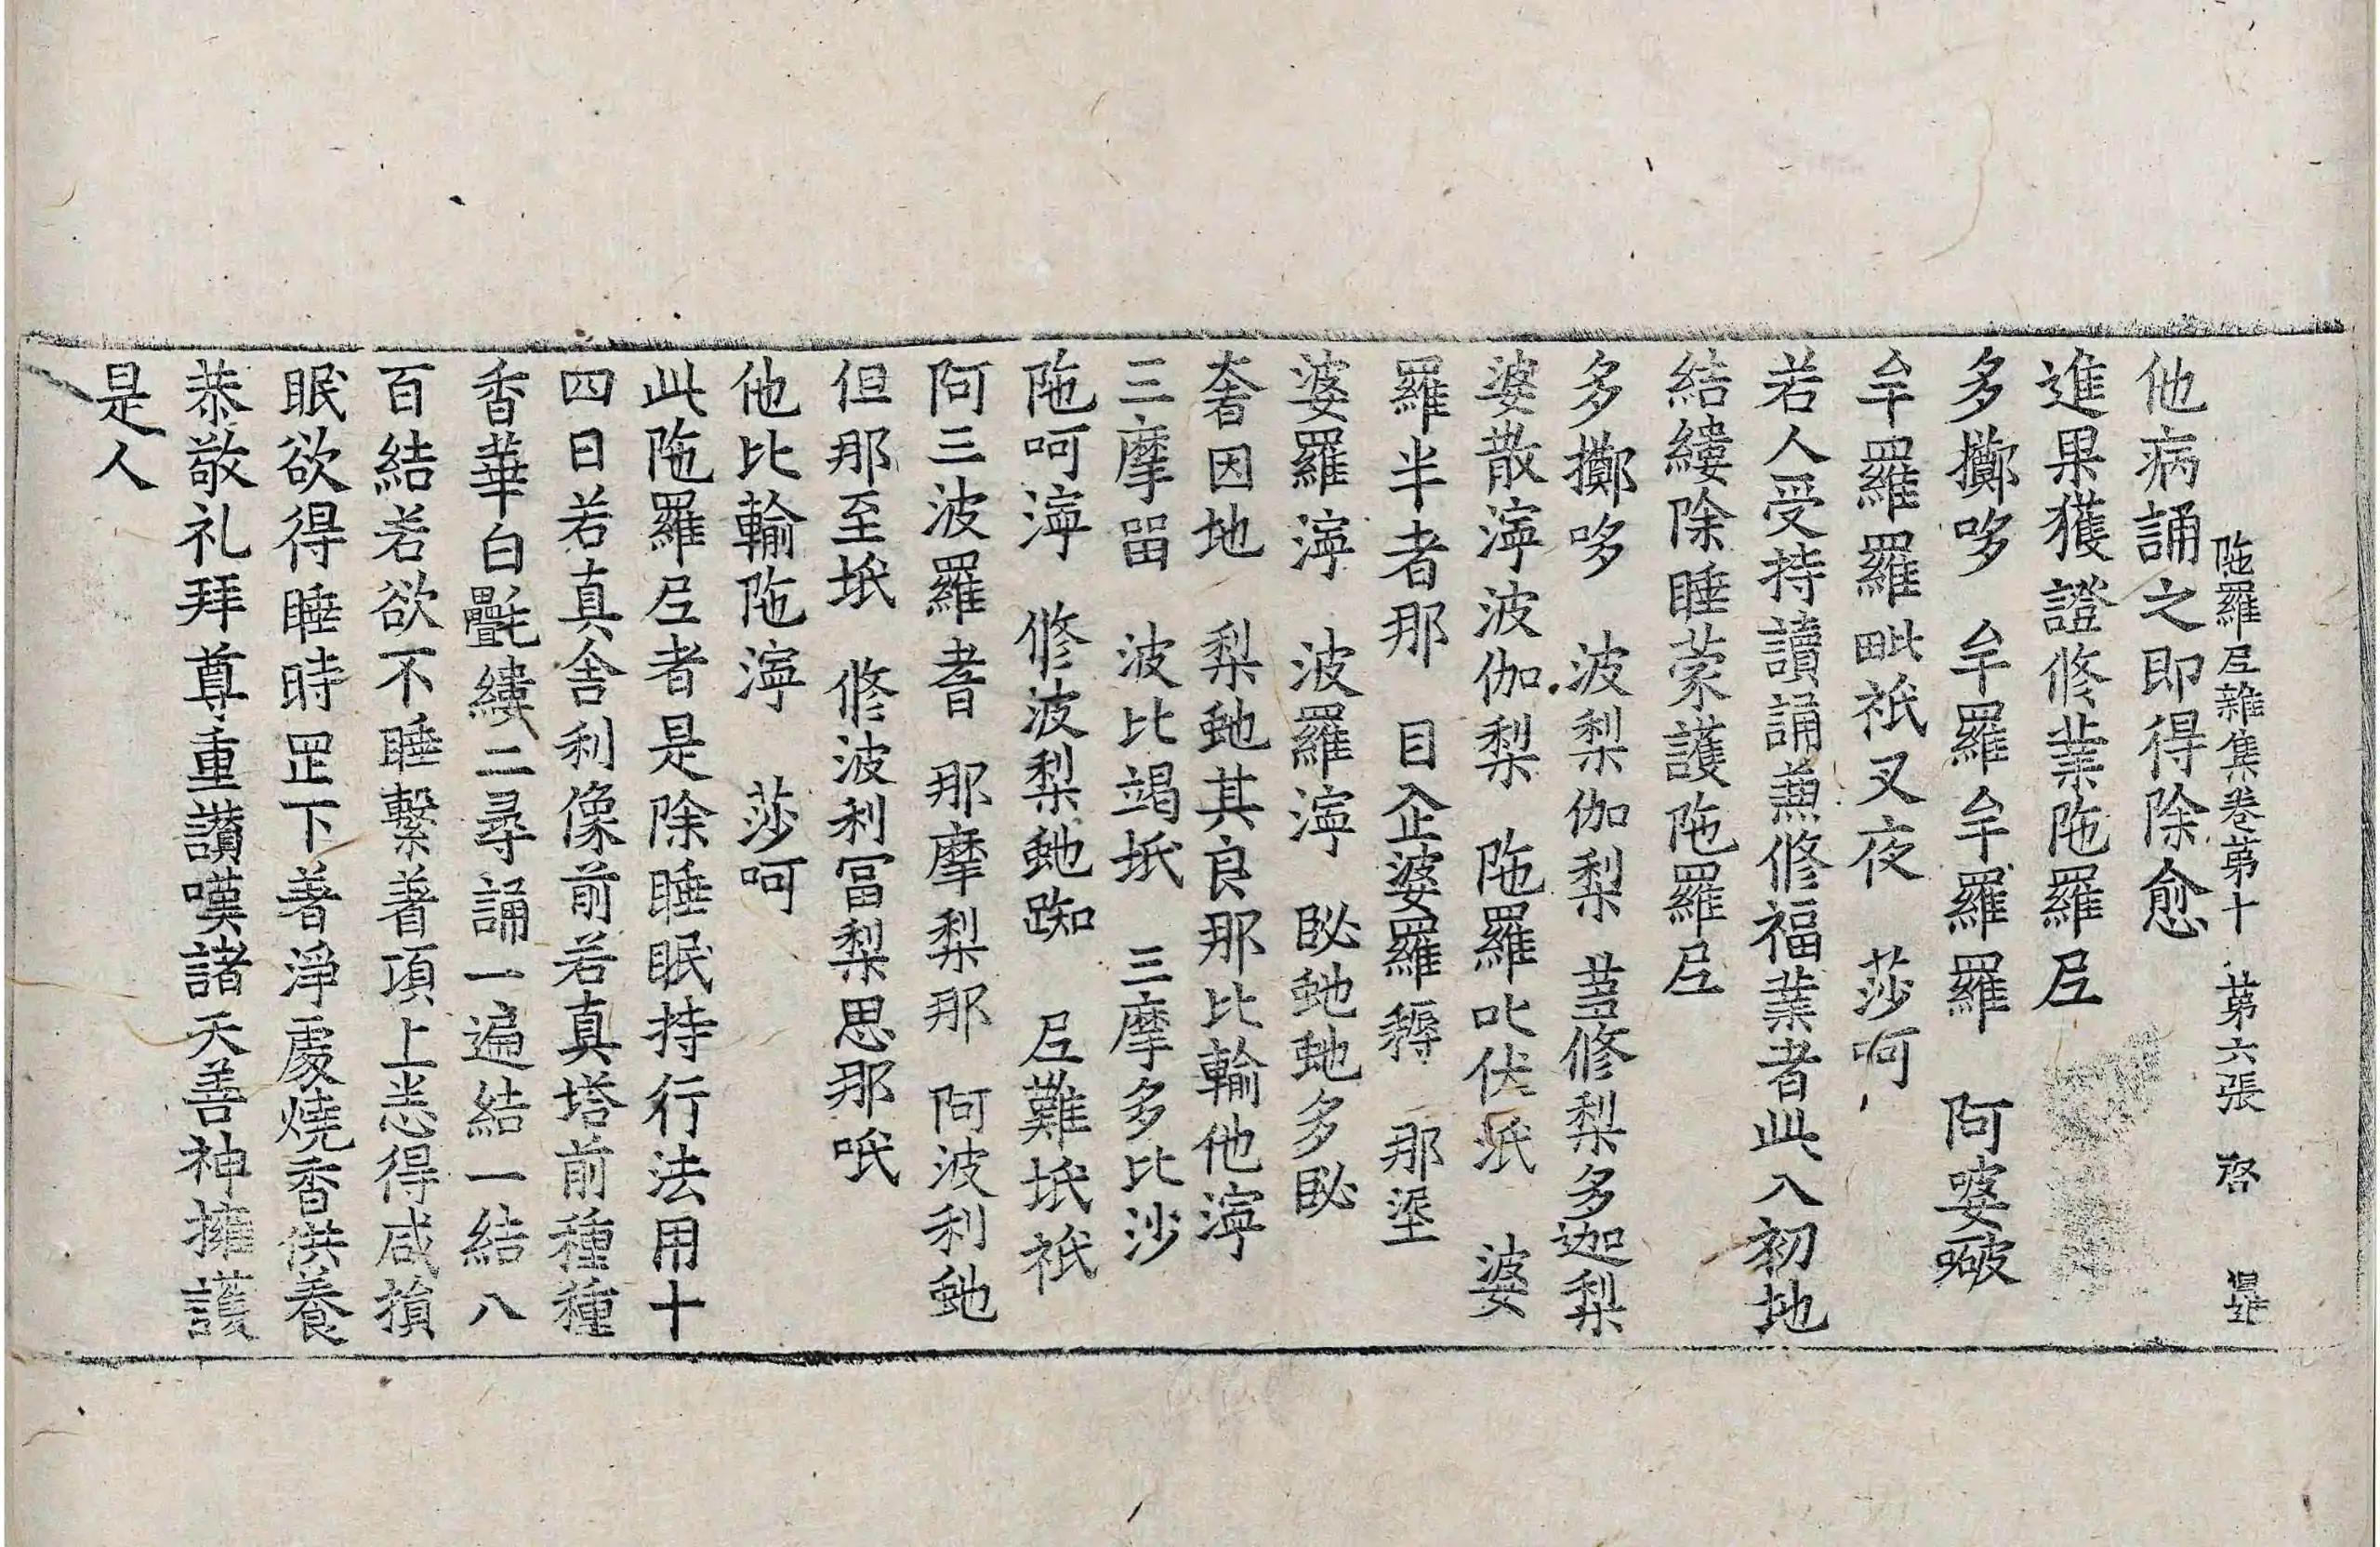 陁羅尼雜集卷苐十 苐六張 啓
他病誦之即得除愈
進果獲證修業陁羅尼
多擲哆 牟羅牟羅羅 阿婆
牟羅羅毗祇叉夜 莎呵
若人受持讀誦兼修福業者此入初地
結縷除睡蒙護陁羅尼
多擲哆 波梨伽梨 修梨多迦梨
婆散濘波伽梨 陁羅叱伏 婆
羅半者那 目企婆羅 那
婆羅濘 波羅濘 虵多
奢因地 梨虵其良那比輸他濘
三摩留 波比竭坻 三摩多比沙
陁呵濘 修波梨虵踟 尼難坻祇
阿三波羅耆 那摩梨那 阿波利虵
但那至坻 修波利富梨思那呧
他比輸陁濘 莎呵
此陁羅尼者是除睡眠持行法用十
四日若真舍利像前若真塔前種種
香華白㲲縷二尋誦一遍結一結八
百結若欲不睡繫著項上恙得咸損
眠欲得睡時㞷下著淨處燒香供養
恭敬礼拜尊重讃嘆諸天善神擁護
是人